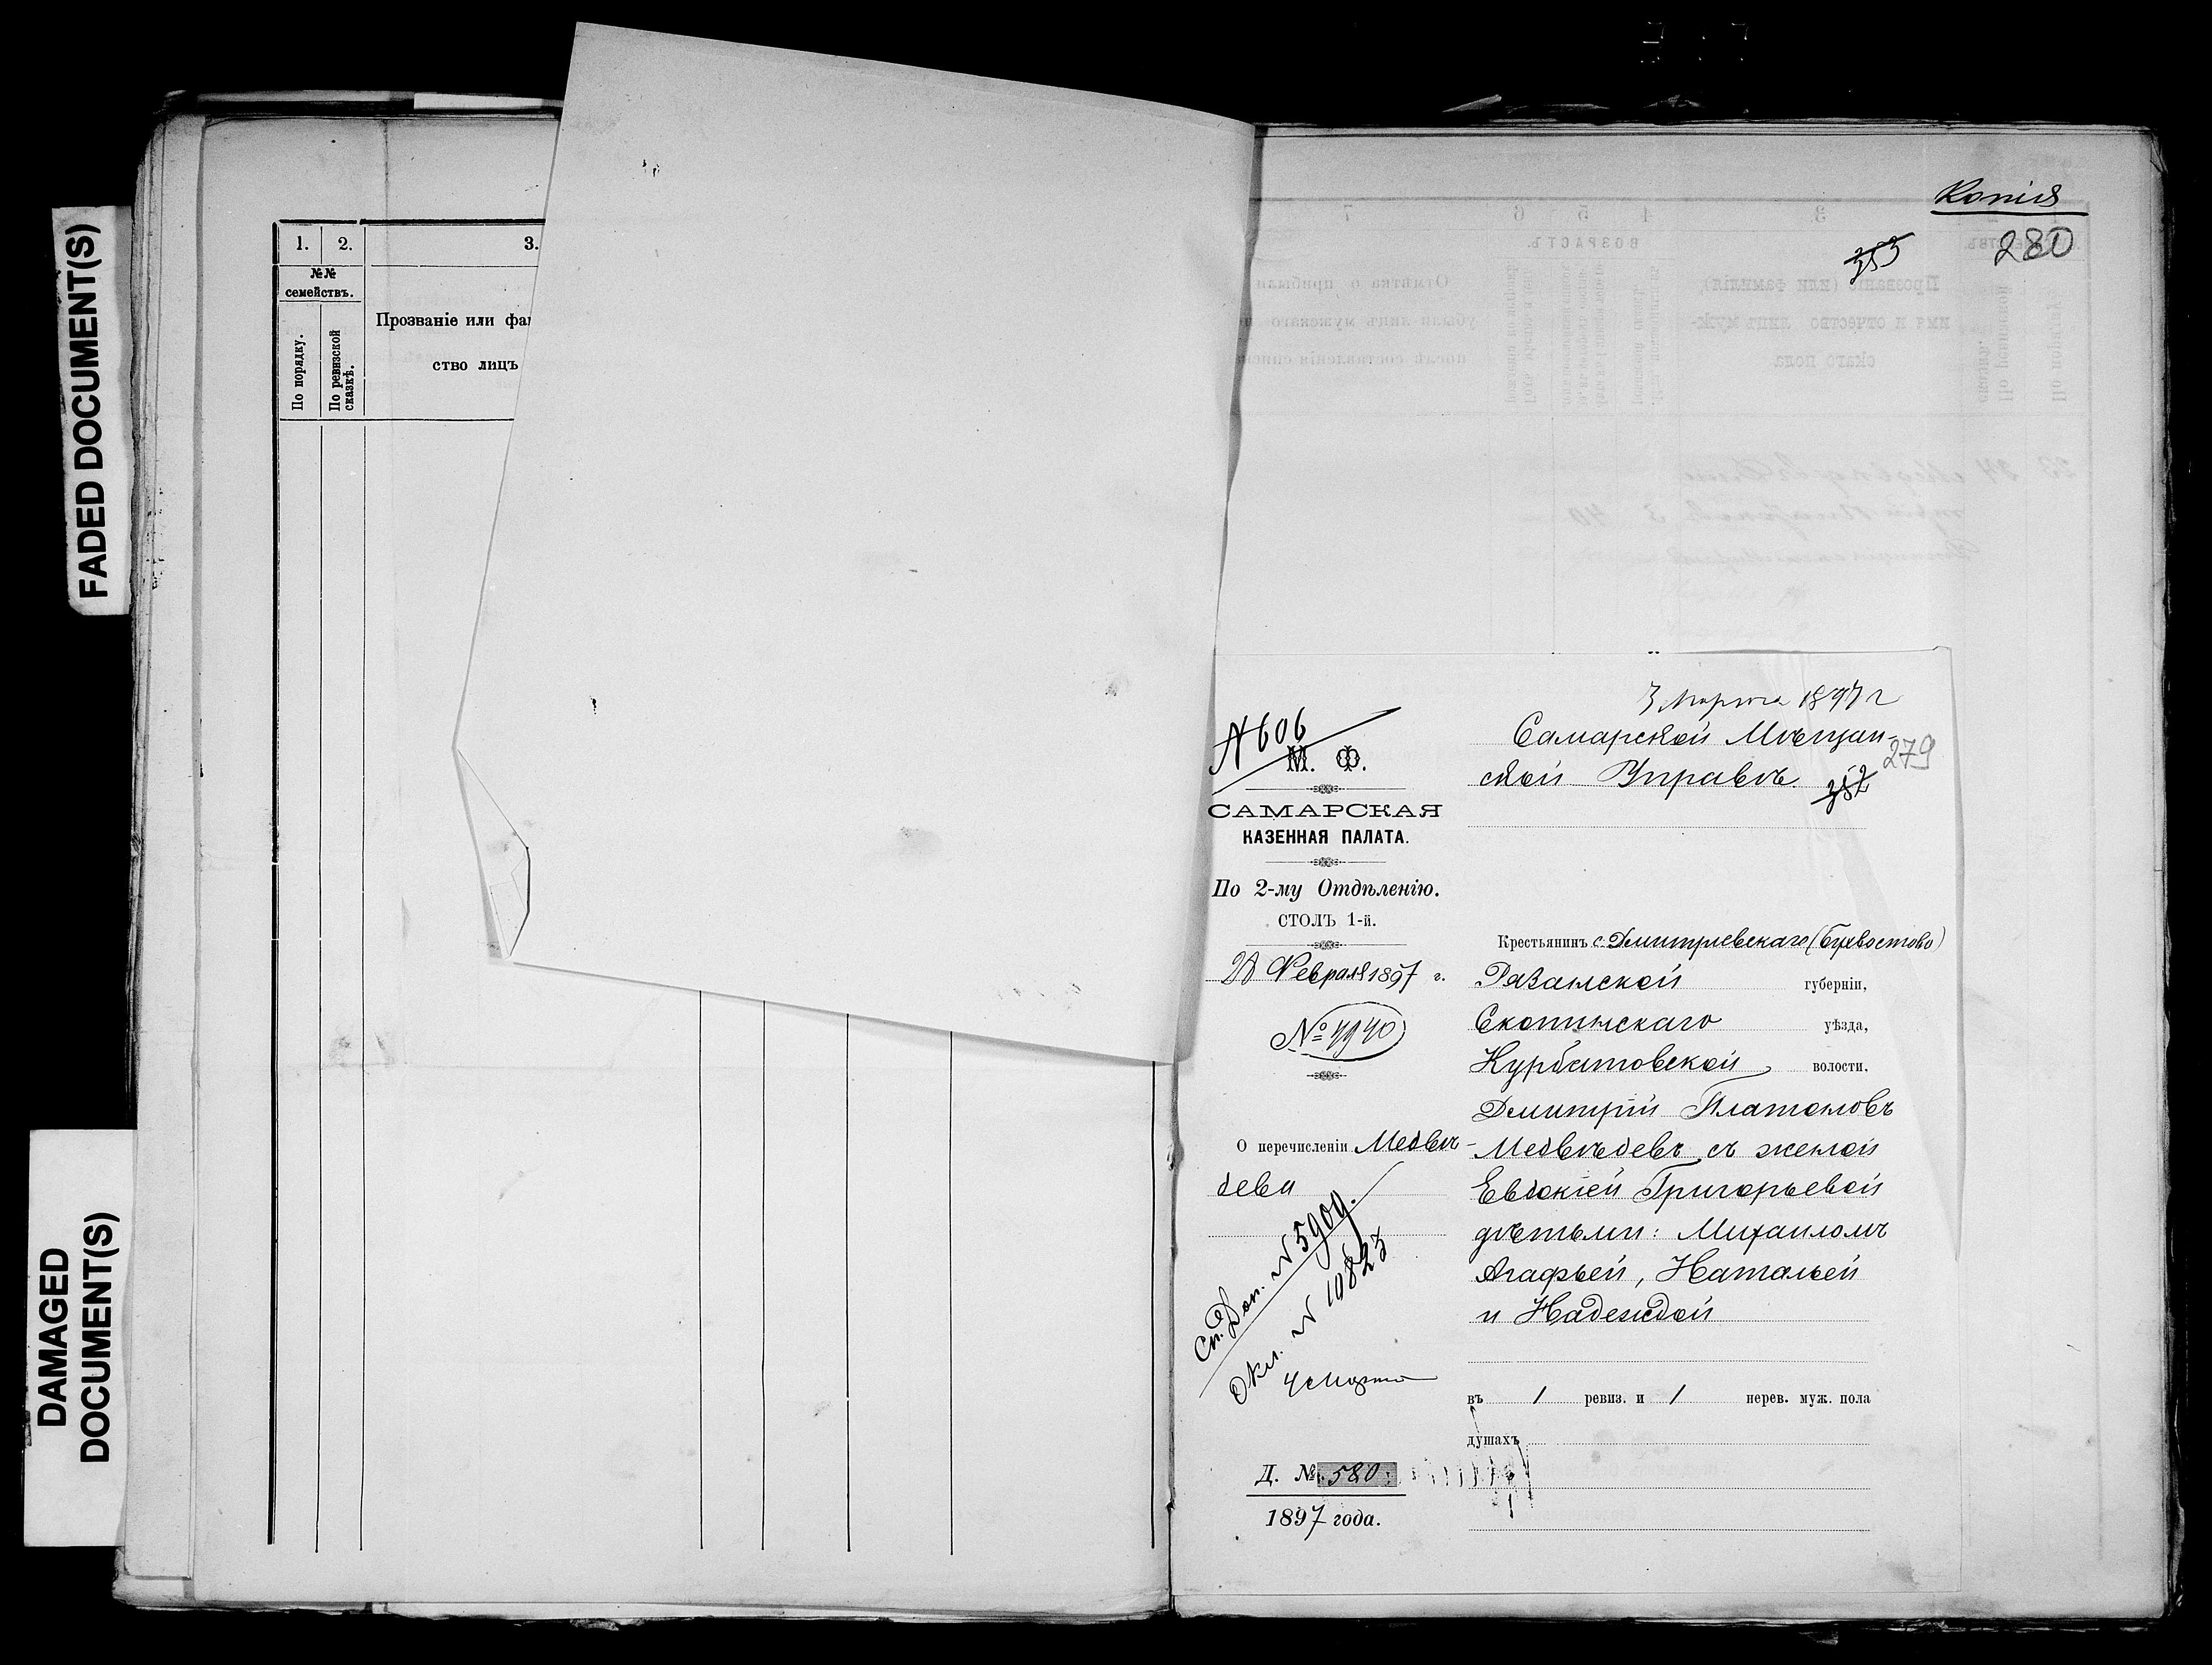 FADED DOCUMENT(S)
DAMAGED
DOCUMENT(S)
1. 2. 3.
№№
семействъ.
По порядку.
По ревизской
сказкѣ.
Прозваніе или фа
ство лицъ
Копія
253
280
3 Марта 1897 г
Самарской Мѣщан-
ской Управѣ.
279
252
N 606
М. Ф.
САМАРСКАЯ
КАЗЕННАЯ ПАЛАТА.
По 2-му Отдѣленію.
СТОЛЪ 1-й.
Февраля 1897 г.
№ 4940
О перечисленіи Медвѣ-
дева
Сп. Доп. N 5909.
Окл. N 10823
4 Марта
Д. № 580
1897 года.
Крестьянинъ с. Дмитріевскаго (Бухвостово)
Рязанской губерніи,
Скопинскаго уѣзда,
Курбатовской волости.
Дмитрій Платоновъ
Медвѣдевъ съ женой
Евдокіей Григорьевой
дѣтьми: Михаиломъ
Агафьей, Натальей
и Надеждой
въ 1 ревиз. и 1 нерев. муж. пола
душахъ